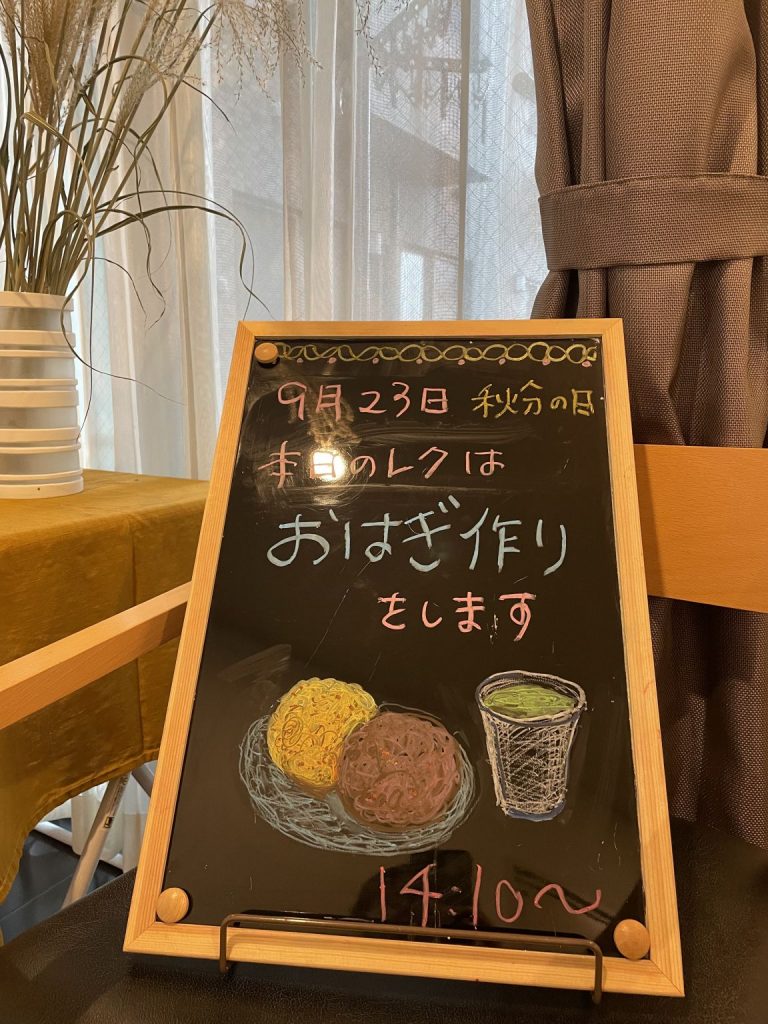 9月23日 秋分の日
本日のレクは
おはぎ作り
をします
14:10〜